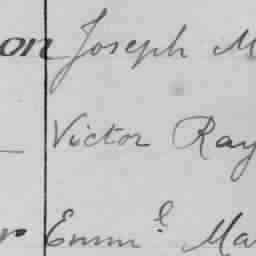 on Joseph M
Victor Ray
r Emm.l Ma